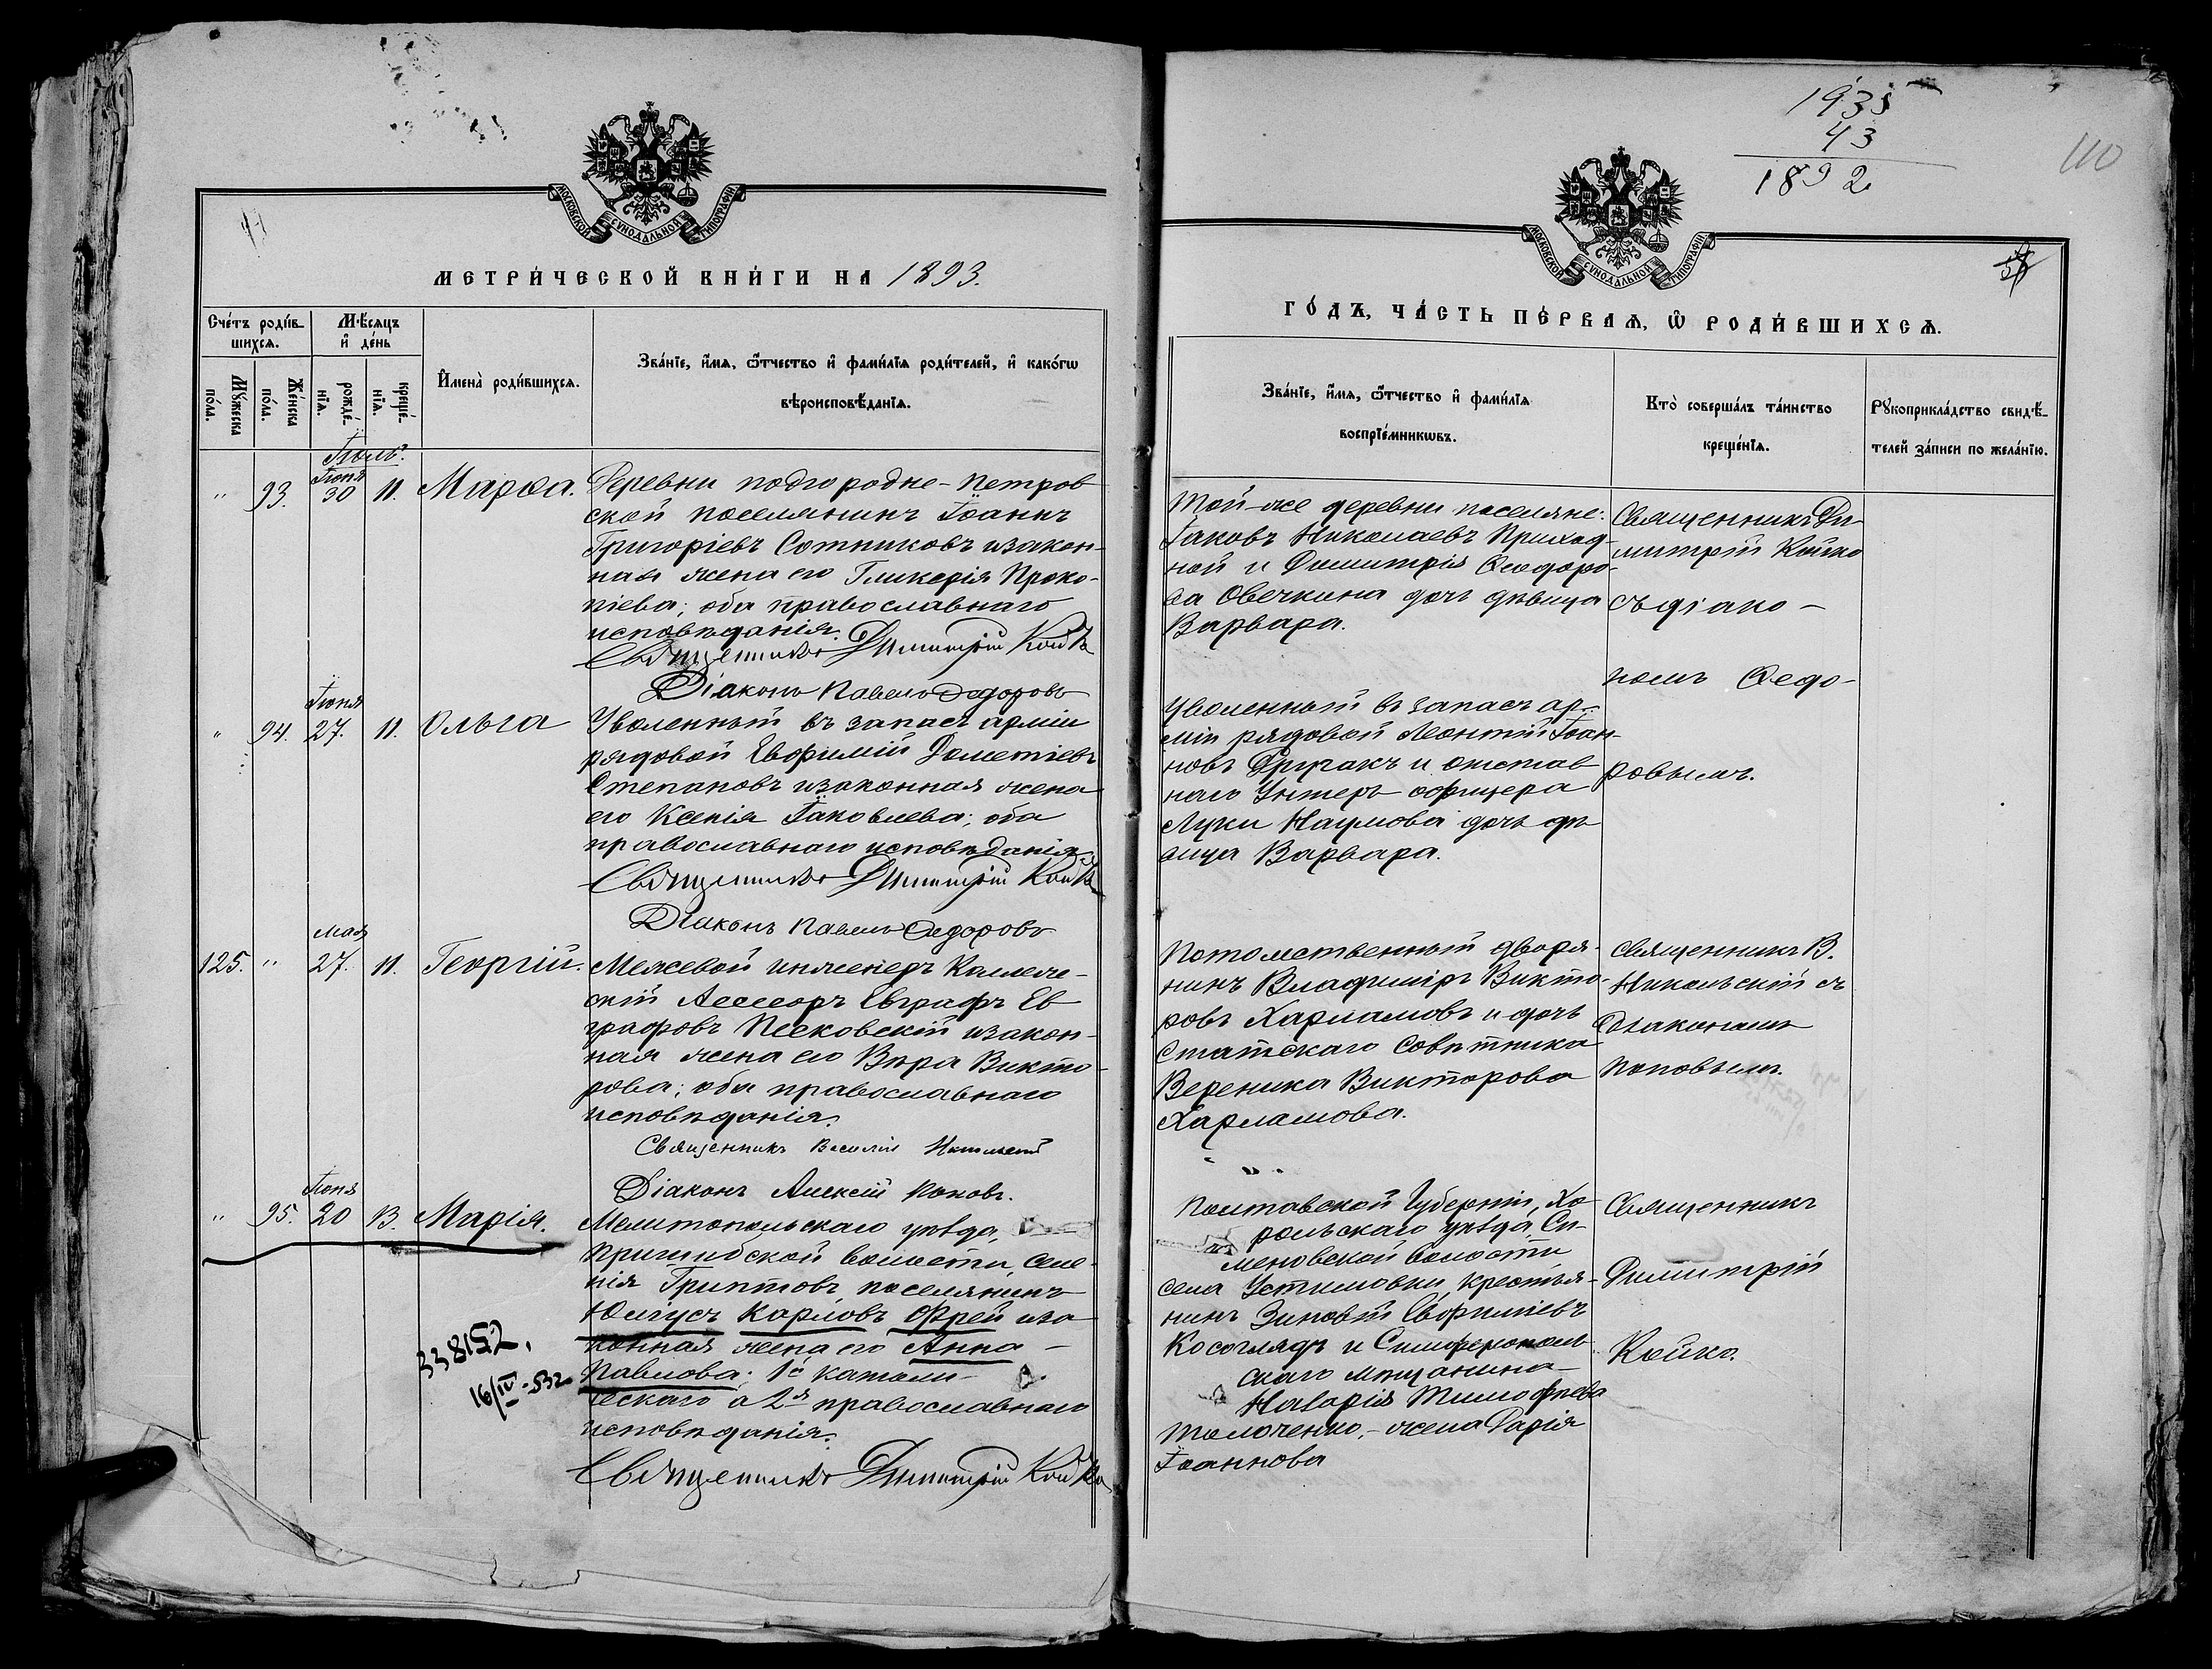 МОСКОВСКОЙ СУНОДАЛЬНОЙ ТИПОГРАФІИ
МЕТРИ́ЧЕСКОЙ КНИ́ГИ НА 1893.
Сче́тъ роди́в-
шихсѧ.
Мѣ́сѧцъ
и҆ де́нь
И҆мена̀ роди́вшихсѧ.
Зва́нїе, и҆́мѧ, ѻ҆́тчество и҆ фами́лїѧ роди́телей, и҆ како́гѡ
вѣроисповѣ́данїѧ.
Мꙋ́жеска
по́ла.
Же́нска
по́ла.
рожде́-
нїѧ.
креще́-
нїѧ.
Іюль.
" 93. Іюня 30 11. Марѳа.
Деревни подгородне-Петров
ской поселянинъ Іоаннъ
Григоріевъ Сотниковъ изакон-
ная жена его Гликерія Проко-
піева; оба православнаго
исповѣданія.
Священникъ Димитрій Койко
Діаконъ Павелъ Ѳедоровъ
" 94. Іюня 27. 11. Ольга
Уволенный въ запасъ арміи
рядовой Евфимій Дометіевъ
Степановъ изаконная жена
его Ксенія Іаковлева; оба
православнаго исповѣданія
Священникъ Димитрій Койко
Діаконъ Павелъ Ѳедоровъ
125. " мая 27. 11. Георгій.
Межевой инженеръ Коллеж-
скій Ассесоръ Евграфъ Ев
графовъ Песковскій изакон-
ная жена его Вѣра Викто-
рова; оба православнаго
исповѣданія.
Священникъ Василій Никольскій
Діаконъ Алексій Поповъ.
" 95. Іюня 20 13. Марія.
Мелитопольскаго уѣзда,
Пришибской волости, селе-
нія Гринтовъ, поселянинъ
Юлиусъ Карловъ Фрей иза
конная жена его Анна -
Павлова; 1й католи-
ческаго а 2я православнаго
исповѣданія.
Священникъ Димитрій Койко
338152.
16/IV-532
1935
43
1892
110
МОСКОВСКОЙ СУНОДАЛЬНОЙ ТИПОГРАФІИ
ГО́ДЪ, ЧА́СТЬ ПЕ́РВАѦ, Ѡ҆ РОДИ́ВШИХСѦ.
Зва́нїе, и҆́мѧ, ѻ҆́тчество и҆ фами́лїѧ
воспрїе́мникѡвъ.
Кто̀ соверша́лъ та́инство
креще́нїѧ.
Рꙋкоприкла́дство свидѣ́-
телей за́писи по жела́нїю.
Той-же деревни поселяне:
Іаковъ Николаевъ Приход-
ной и Димитрія Ѳеодоро-
ва Овечкина дочь дѣвица
Варвара.
Священникъ Ди-
митрій Койко
съ діако-
номъ Ѳедо-
ровымъ.
Уволенный въ запасъ ар-
міи рядовой Леонтій Іоан-
новъ и отстав
наго Унтеръ офицера
Луки Наумова дочь дѣ
вица Варвара.
Потомственный дворя-
нинъ Владиміръ Викто-
ровъ Харламовъ и дочь
Статскаго Совѣтника
Вереника Викторова
Харламова.
священникъ В.
Никольскій съ
Діакономъ
Поповымъ.
Полтавской Губерніи, Хо-
рольскаго уѣзда, Се-
меновской волости
села Устимовки, крестья-
нинъ Зиновій Евфиміевъ
Косоглядъ и Симферополь
скаго мѣщанина-
Назарія Тимофѣева
Толоченко, - жена Дарія
Іоаннова
Священникъ
Димитрій
Койко.